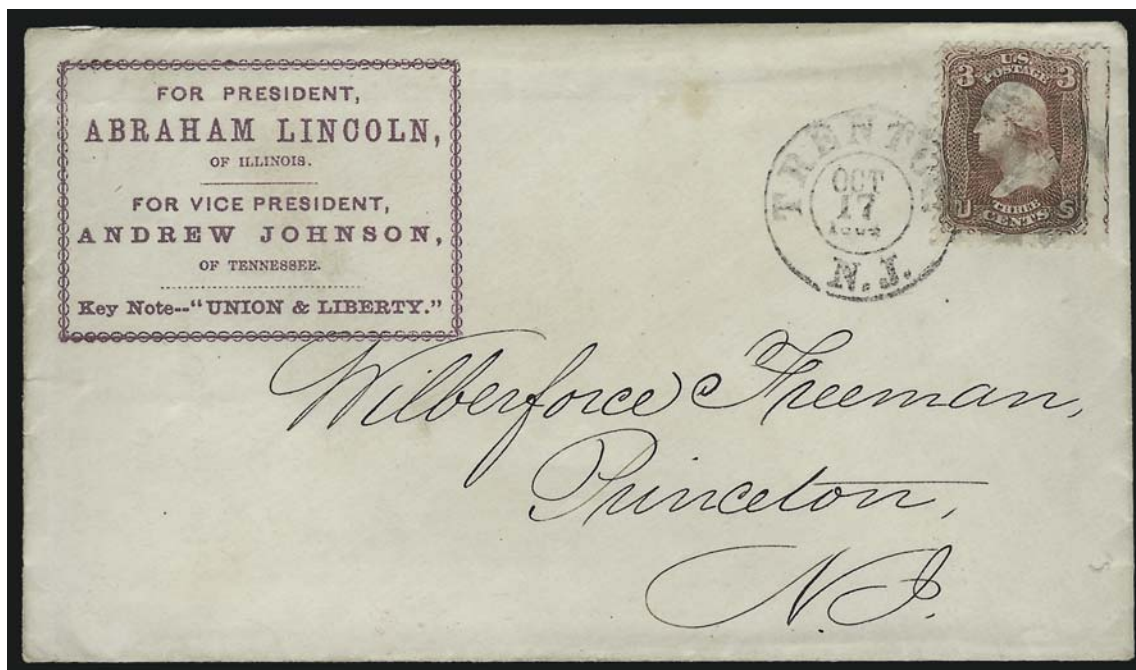 FOR PRESIDENT,
ABRAHAM LINCOLN,
OF ILLINOIS.
FOR VICE PRESIDENT,
ANDREW JOHNSON,
OF TENNESSEE.
Key Note--"UNION & LIBERTY."
TRENTON
OCT
17
N.J.
3 U.S. 3
POSTAGE
THREE
U CENTS S
Wilberforce Freeman,
Princeton,
N.J.